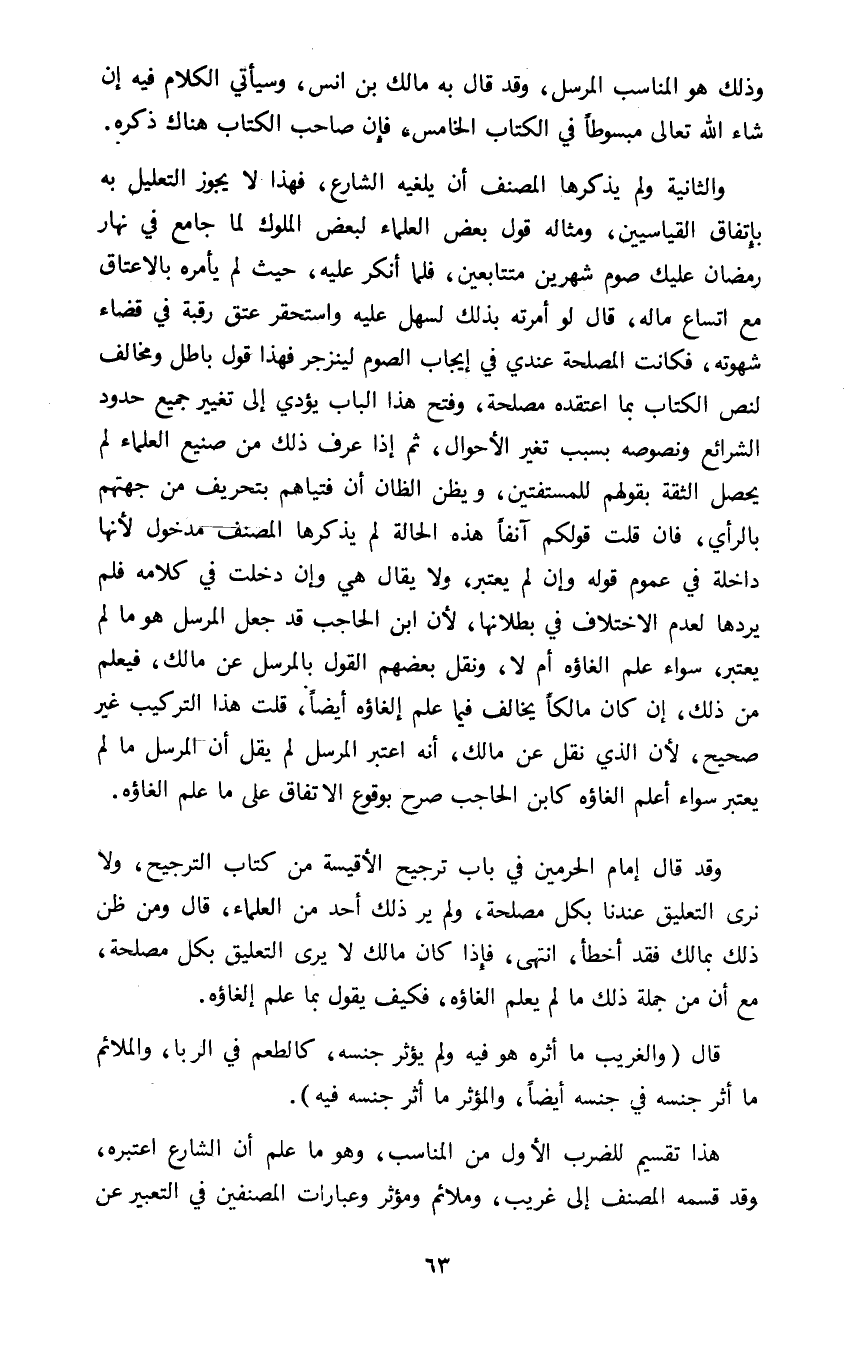 وذلك هو المناسب المرسل، وقد قال به مالك بن انس، وسيأتي الكلام فيه إن
شاء الله تعالى مبسوطاً في الكتاب الخامس، فإن صاحب الكتاب هناك ذكره.
والثانية ولم يذكرها المصنف أن يلغيه الشارع، فهذا لا يجوز التعليل به
بإتفاق القياسيين، ومثاله قول بعض العلماء لبعض الملوك لما جامع في نهار
رمضان عليك صوم شهرين متتابعين، فلما أنكر عليه، حيث لم يأمره بالاعتاق
مع اتساع ماله، قال لو أمرته بذلك لسهل عليه واستحقر عتق رقبة في قضاء
شهوته، فكانت المصلحة عندي في إيجاب الصوم لينزجر فهذا قول باطل ومخالف
لنص الكتاب بما اعتقده مصلحة، وفتح هذا الباب يؤدي إلى تغيير جميع حدود
الشرائع ونصوصه بسبب تغير الأحوال، ثم إذا عرف ذلك من صنيع العلماء لم
يحصل الثقة بقولهم للمستفتين، ويظن الظان أن فتياهم بتحريف من جهتهم
بالرأي، فان قلت قولكم آنفاً هذه الحالة لم يذكرها المصنف مدخول لأنها
داخلة في عموم قوله وإن لم يعتبر، ولا يقال هي وإن دخلت في كلامه فلم
يردها لعدم الاختلاف في بطلانها، لأن ابن الحاجب قد جعل المرسل هو ما لم
يعتبر، سواء علم الغاؤه أم لا، ونقل بعضهم القول بالمرسل عن مالك، فيعلم
من ذلك، إن كان مالكاً يخالف فيما علم إلغاؤه أيضاً، قلت هذا التركيب غير
صحيح، لأن الذي نقل عن مالك، أنه اعتبر المرسل لم يقل أن المرسل ما لم
يعتبر سواء أعلم الغاؤه كابن الحاجب صرح بوقوع الاتفاق على ما علم الغاؤه.
وقد قال إمام الحرمين في باب ترجيح الأقيسة من كتاب الترجيح، ولا
نرى التعليق عندنا بكل مصلحة، ولم ير ذلك أحد من العلماء، قال ومن ظن
ذلك بمالك فقد أخطأ، انتهى، فإذا كان مالك لا يرى التعليق بكل مصلحة،
مع أن من جملة ذلك ما لم يعلم الغاؤه، فكيف يقول بما علم إلغاؤه.
قال (والغريب ما أثره هو فيه ولم يؤثر جنسه، كالطعم في الربا، والملائم
ما أثر جنسه في جنسه أيضاً، والمؤثر ما أثر جنسه فيه).
هذا تقسيم للضرب الأول من المناسب، وهو ما علم أن الشارع اعتبره،
وقد قسمه المصنف إلى غريب، وملائم ومؤثر وعبارات المصنفين في التعبير عن
٦٣